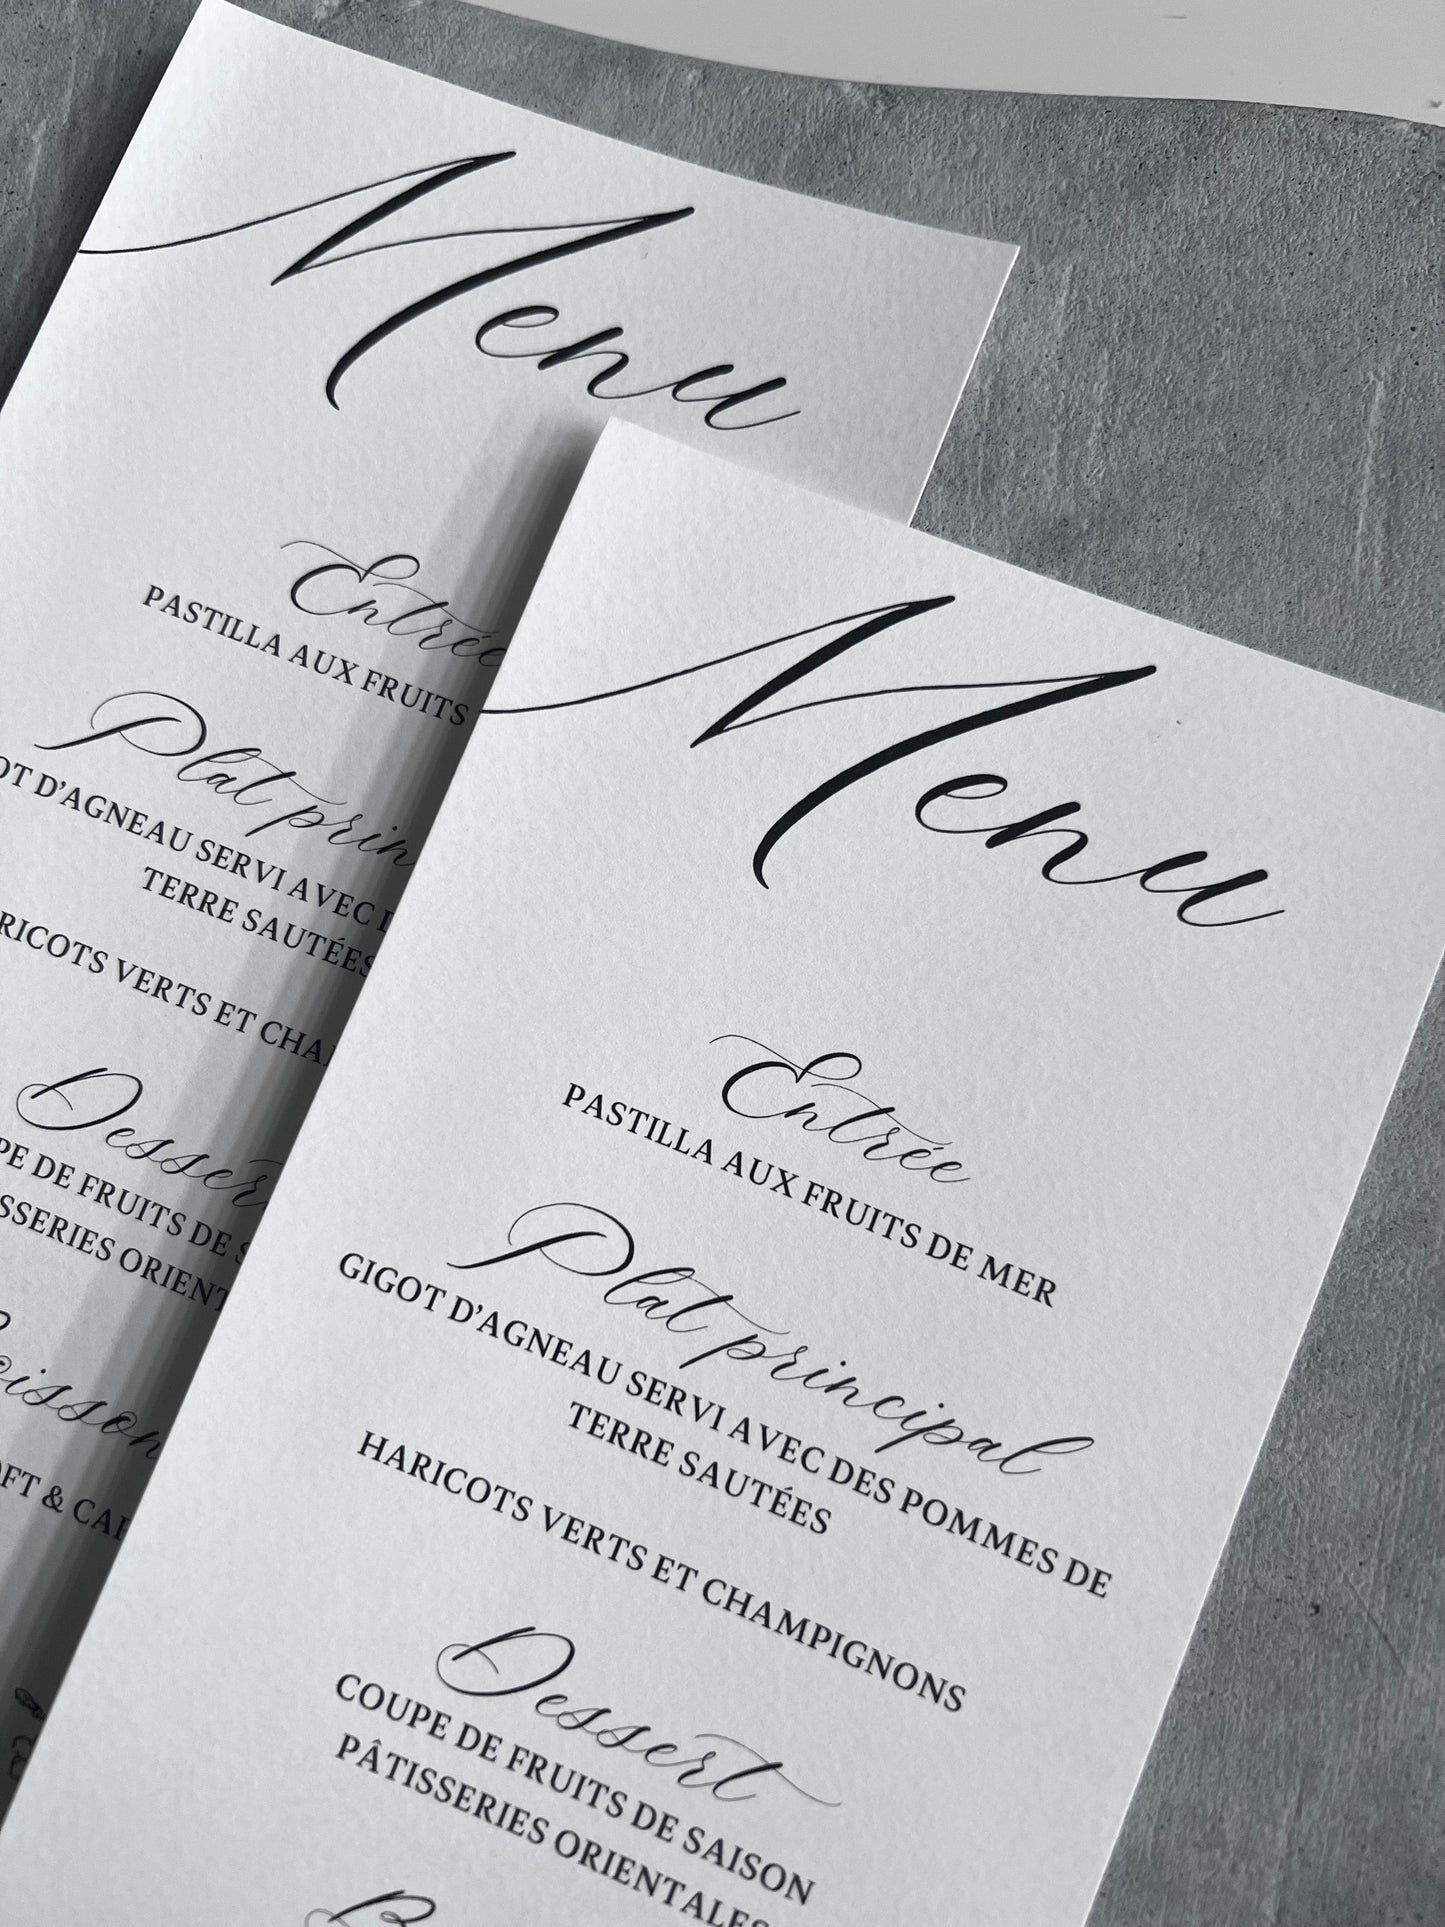 Menu
Entrée
PASTILLA AUX FRUITS
Plat
D'AGNEAU SERVI AVEC
TERRE SAUTÉES
VERTS ET
Dessert
DE FRUITS DE
Menu
Entrée
PASTILLA AUX FRUITS DE MER
Plat principal
GIGOT D'AGNEAU SERVI AVEC DES POMMES DE
TERRE SAUTÉES
HARICOTS VERTS ET CHAMPIGNONS
Dessert
COUPE DE FRUITS DE SAISON
PÂTISSERIES ORIENTALES